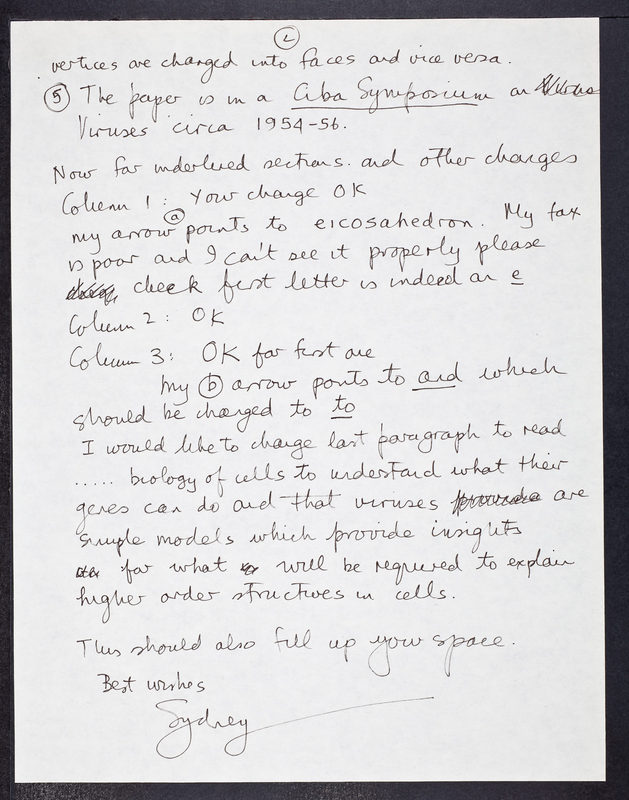 2
vertices are changed into faces and vice versa.
5 The paper is in a Ciba Symposium on
Viruses circa 1954-56.
Now for underlined sections and other changes
Column 1: Your change OK
my arrow a points to eicosahedron. My fax
is poor and I can't see it properly please
check first letter is indeed an e
Column 2: OK
Column 3: OK for first one
My b arrow points to and which
should be changed to to
I would like to change last paragraph to read
..... biology of cells to understand what their
genes can do and that viruses provide are
simple models which provide insights
for what will be required to explain
higher order structures in cells.
This should also fill up your space.
Best wishes
Sydney